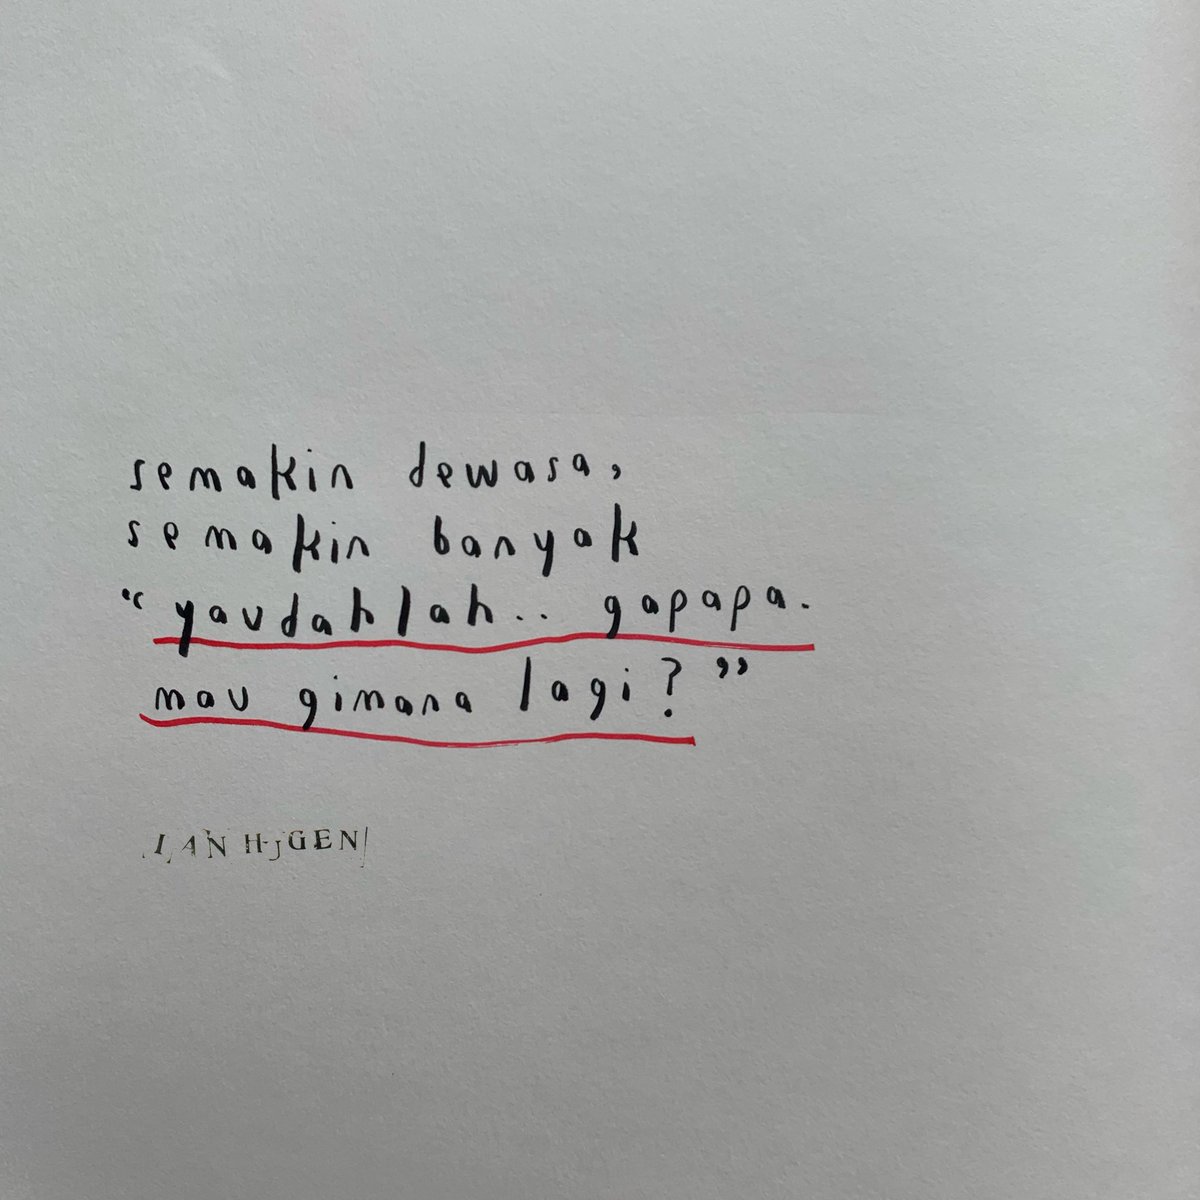 semakin dewasa,
semakin banyak
“yaudahlah.. gapapa.
mau gimana lagi?”
IAN HUGEN